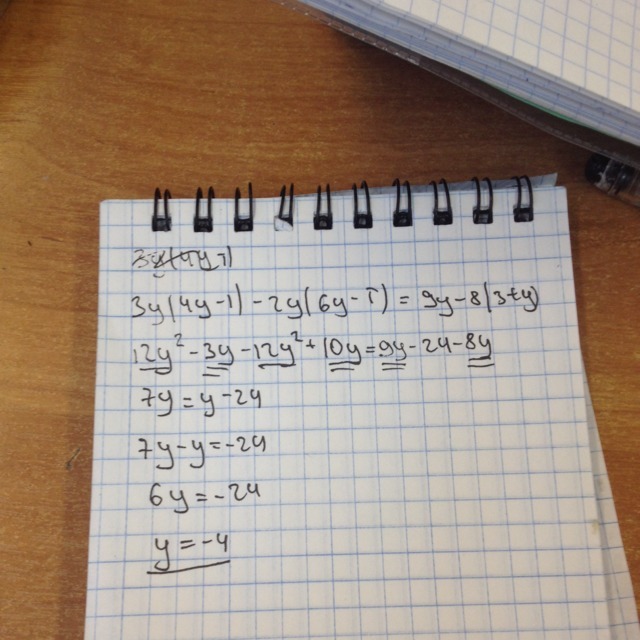 3y(4y-1)-2y(6y-5)=9y-8(3+y)
12y²-3y-12y²+10y=9y-24-8y
7y=y-24
7y-y=-24
6y=-24
y=-4